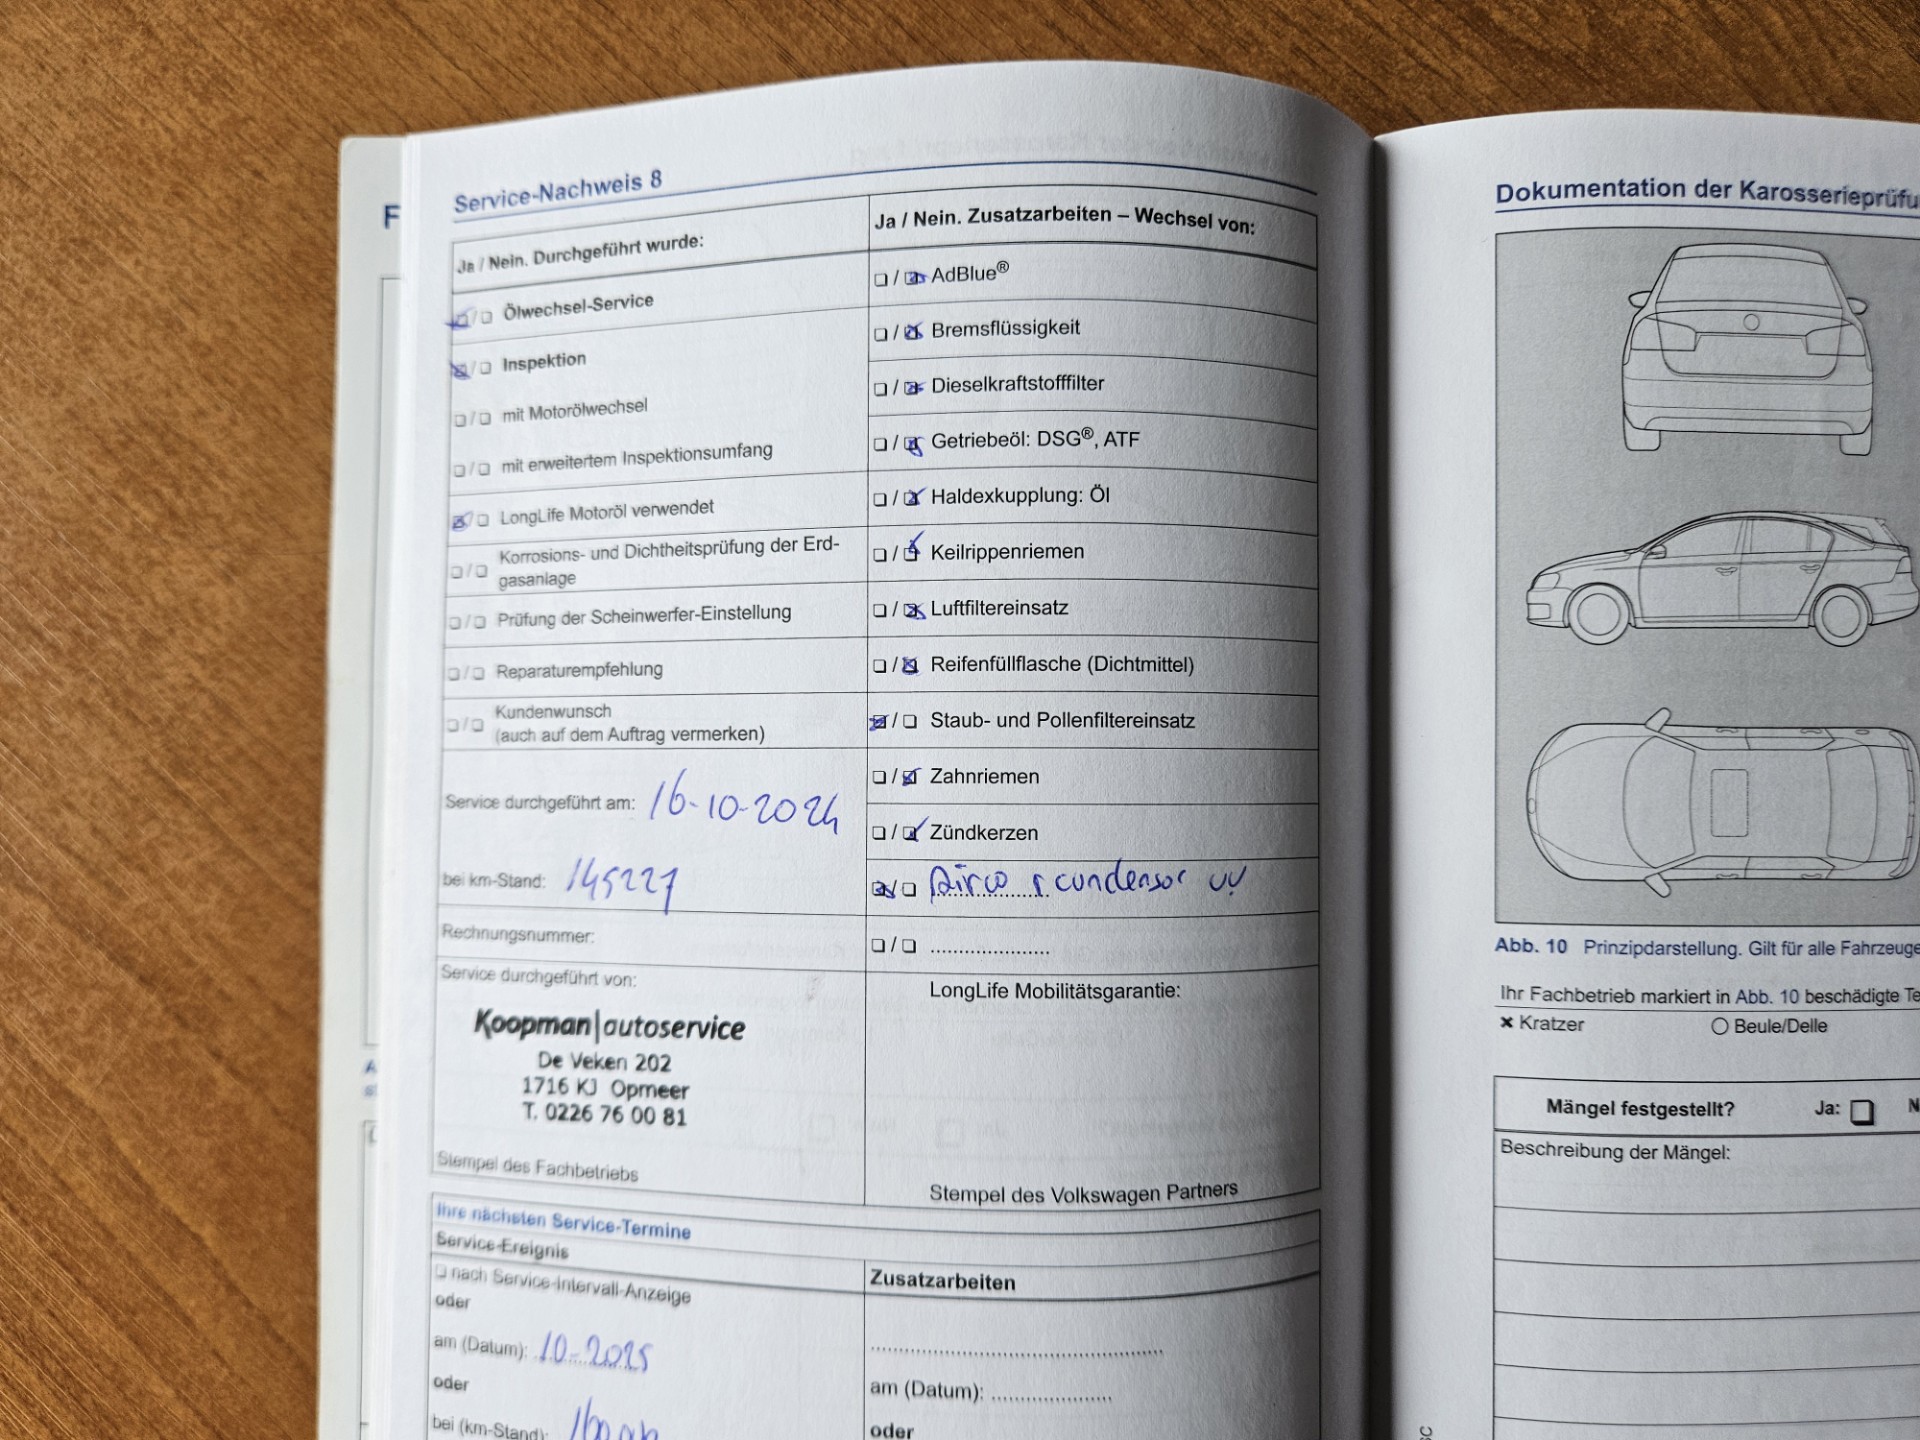 Service-Nachweis 8
Ja / Nein. Durchgeführt wurde:
Ölwechsel-Service
Inspektion
mit Motorölwechsel
mit erweitertem Inspektionsumfang
LongLife Motoröl verwendet
Korrosions- und Dichtheitsprüfung der Erd-
gasanlage
Prüfung der Scheinwerfer-Einstellung
Reparaturempfehlung
Kundenwunsch
(auch auf dem Auftrag vermerken)
Service durchgeführt am: 16-10-2024
bei km-Stand: 145227
Rechnungsnummer:
Service durchgeführt von:
Koopman|autoservice
De Veken 202
1716 KJ Opmeer
T. 0226 76 00 81
Stempel des Fachbetriebs
Ja / Nein. Zusatzarbeiten – Wechsel von:
AdBlue®
Bremsflüssigkeit
Dieselkraftstofffilter
Getriebeöl: DSG®, ATF
Haldexkupplung: Öl
Keilrippenriemen
Luftfiltereinsatz
Reifenfüllflasche (Dichtmittel)
Staub- und Pollenfiltereinsatz
Zahnriemen
Zündkerzen
Airco condensor
LongLife Mobilitätsgarantie:
Stempel des Volkswagen Partners
Ihre nächsten Service-Termine
Service-Ereignis
nach Service-Intervall-Anzeige
oder
am (Datum): 10-2025
oder
bei (km-Stand):
Zusatzarbeiten
am (Datum):
oder
Dokumentation der Karosserieprüfu
Abb. 10 Prinzipdarstellung. Gilt für alle Fahrzeuge
Ihr Fachbetrieb markiert in Abb. 10 beschädigte Te
Kratzer
Beule/Delle
Mängel festgestellt? Ja: N
Beschreibung der Mängel: